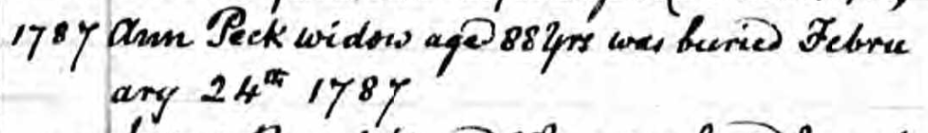 1787 Ann Peck widow aged 88 Yrs was buried Febru
ary 24th 1787